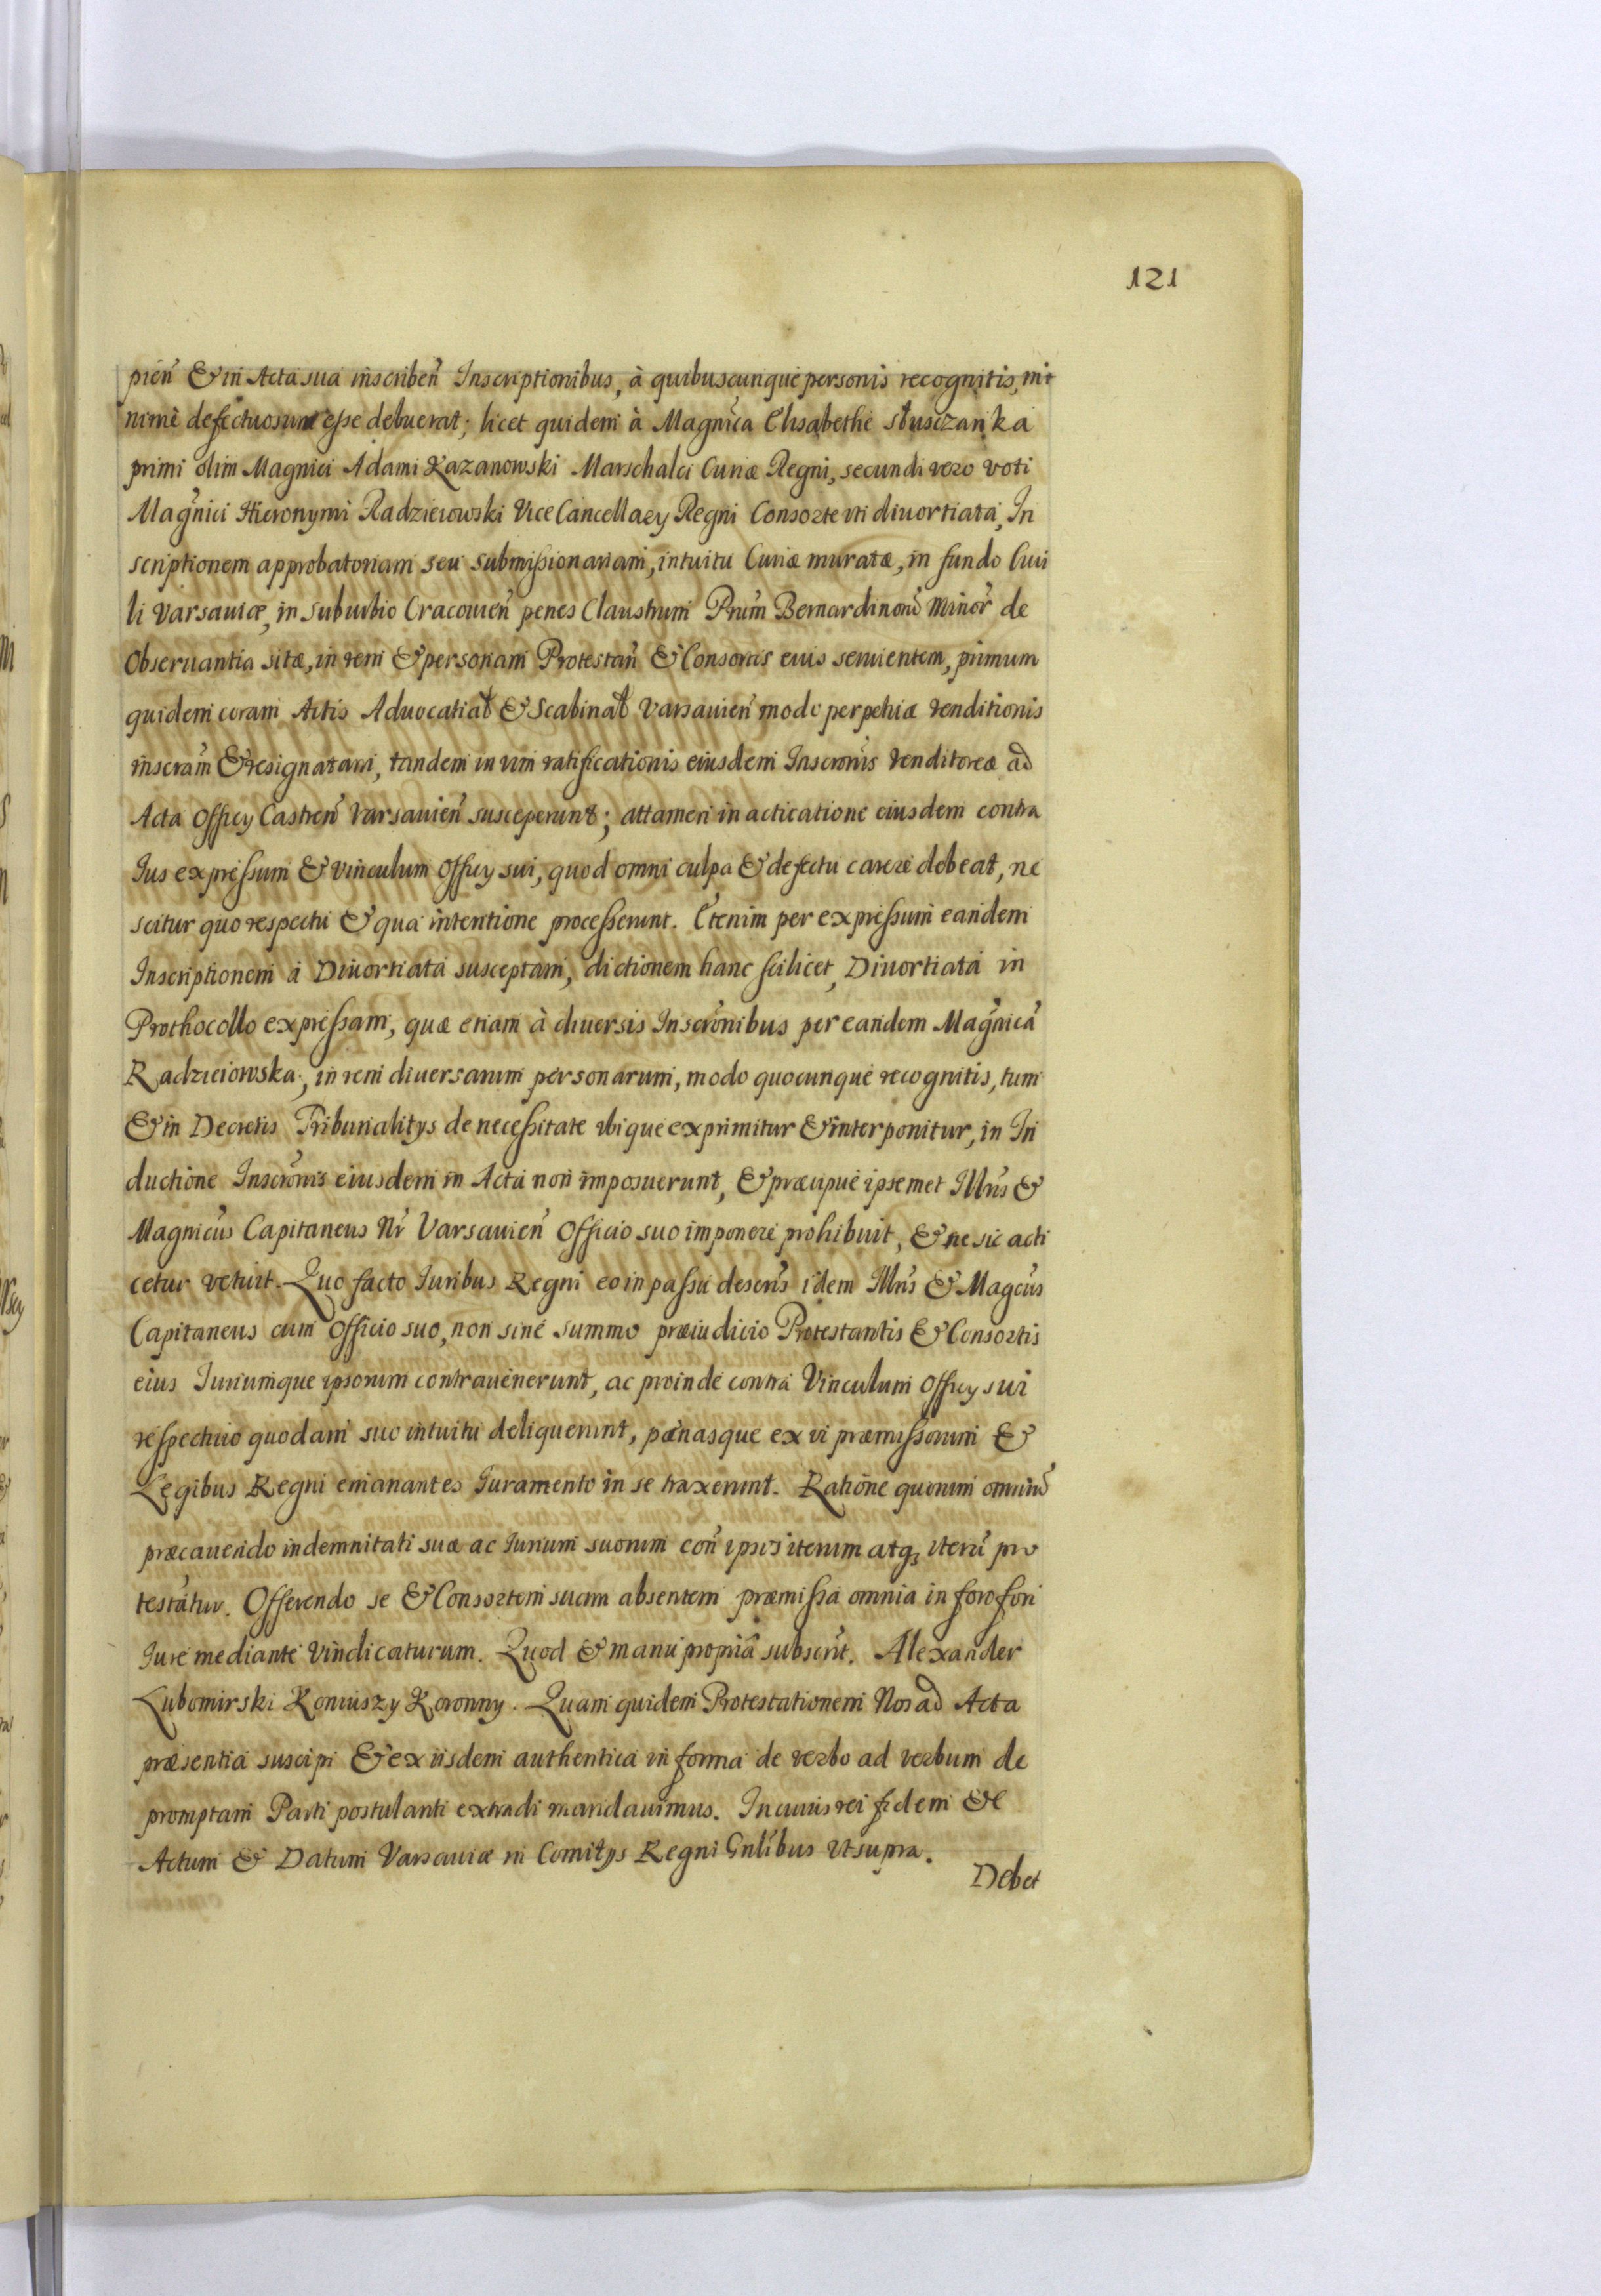 121
pień & in Acta sua inscribeń Inscriptionibus, à quibuscunque personis recognitis, mi
nimè defectuosum esse debuerat; licet quidem à Magnica Elisabethe Słusczanka
primi olim Magnici Adami Kazanowski Marschalci Curiæ Regni, secundi vero voti
Magnici Hieronymi Radzieiowski Vice Cancellary Regni Consorte uti diuortiata, In
scriptionem approbatoriam seu submissionariam, intuitu Curiæ muratæ, in fundo Ciui
li Varsauiæ, in suburbio Cracouień penes Claustrum Prum Bernardinorũ Minor de
Obseruantia sitæ, in rem & personam Protestań & Consortis eius seruientem, primum
quidem coram Actis Aduocatiat & Scabinat Varsauień modo perpetuæ venditionis
inscram & resignatam, tandem in vim ratificationis eiusdem Inscronis venditoreæ ad
Acta Officy Castreń Varsauień susceperunt; attamen in acticatione eiusdem contra
Ius expressum & vinculum Officy sui, quod omni culpa & defectu carere debeat, ne
scitur quo respectu & qua intentione processerunt. Etenim per expressum eandem
Inscriptionem à Diuortiata susceptam, dictionem hanc scilicet, Diuortiata in
Prothocollo expressam, quæ etiam à diuersis Inscronibus per eandem Magnicã
Radzieiowska, in rem diuersarum personarum, modo quocunque recognitis, tum
& in Decretis Tribunalitys de necessitate ubique exprimitur & interponitur, in In
ductione Inscronis eiusdem in Acta non imposuerunt, & præcipue ipsemet Illris &
Magnicus Capitaneus Nr Varsauień Officio suo imponere prohibuit, & ne sic acti
cetur vetuit. Quo facto Iuribus Regni eo in passu deseris idem Illris & Magcus
Capitaneus cum Officio suo, non sine summo præiudicio Protestantis & Consortis
eius Iuriumque ipsorum contrauenerunt, ac proinde contra Vinculum Officy sui
respectuio quodam suo intuitu deliquerunt, pænasque ex vi præmissorum &
Legibus Regni emanantes Iuramento in se traxerunt. Ratione quorum omniũ
præcauendo indemnitati suæ ac Iurium suorum coń ipsos iterum atq3 iterũ pro
testatur. Offerendo se & Consortem suam absentem præmissa omnia in foro fori
Iure mediante vindicaturum. Quod & manu propriâ subscrit. Alexander
Lubomirski Koniuszy Koronny. Quam quidem Protestationem Nos ad Acta
præsentia suscipi & ex iisdem authentica in forma de verbo ad verbum de
promptam Parti postulanti extradi mandauimus. In cuius rei fidem &c
Actum & Datum Varsauiæ in Comitys Regni Gnlibus ut supra.
Debet